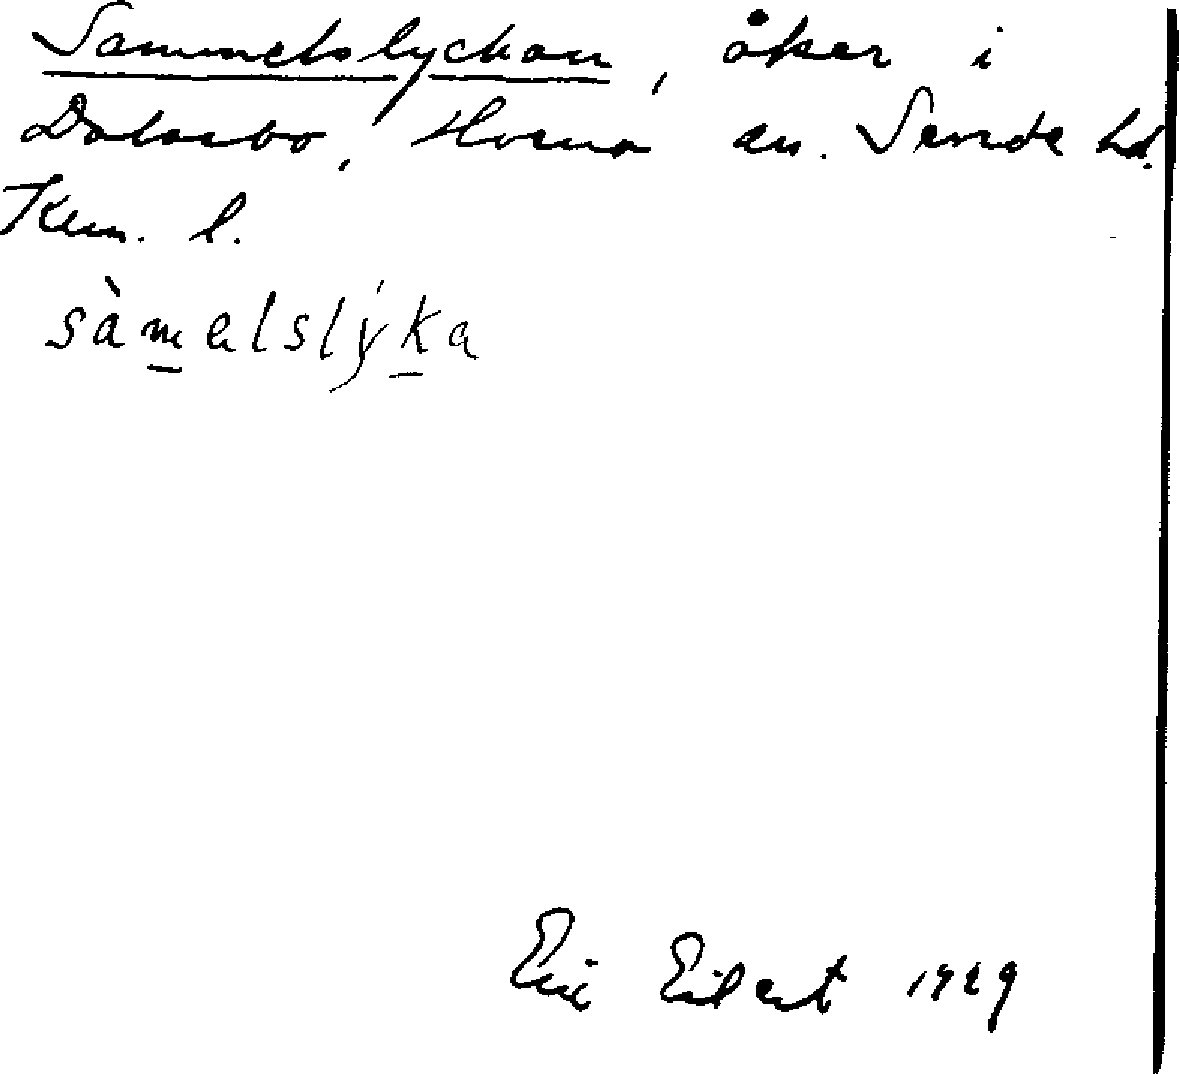 Sammelslyckan, åker i
Dalsebo, Hvena sn. Sevede hd.
Kalm. l.
sàmelslýka
Eric Eilert 1929